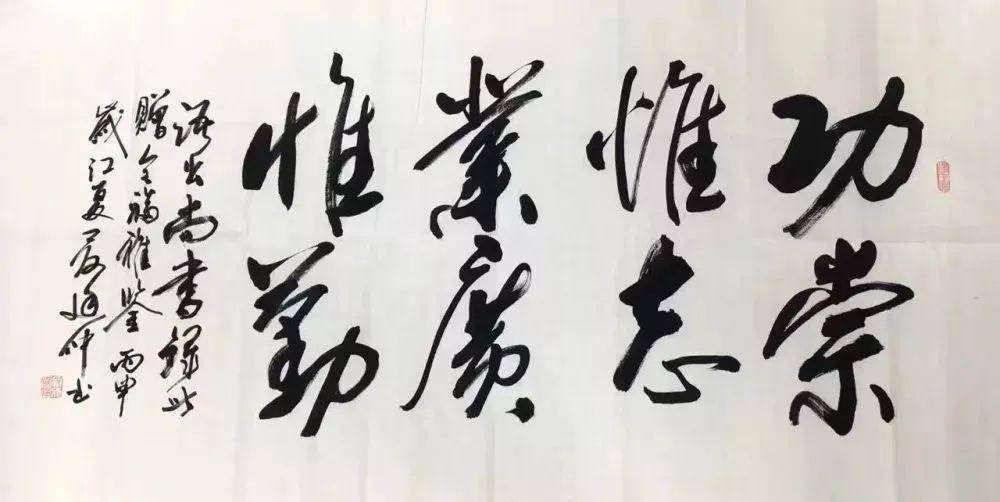 功崇
惟志
業廣
惟勤
語出尚書錄此
贈全福雅鑒丙申
歲江夏延仲书